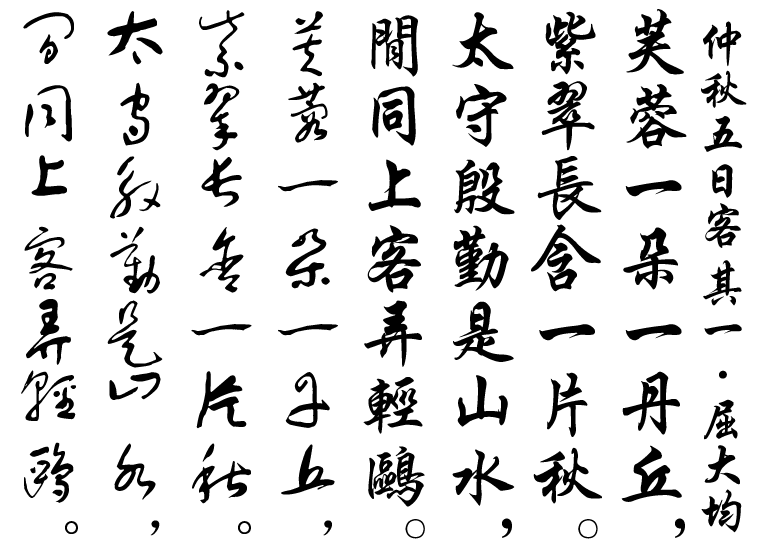 仲秋五日客其一·屈大均
芙蓉一朵一丹丘,
紫翠長含一片秋。
太守殷勤是山水,
閒同上客弄輕鷗。
芙蓉一朵一丹丘,
紫翠長含一片秋。
太守殷勤是山水,
閒同上客弄輕鷗。